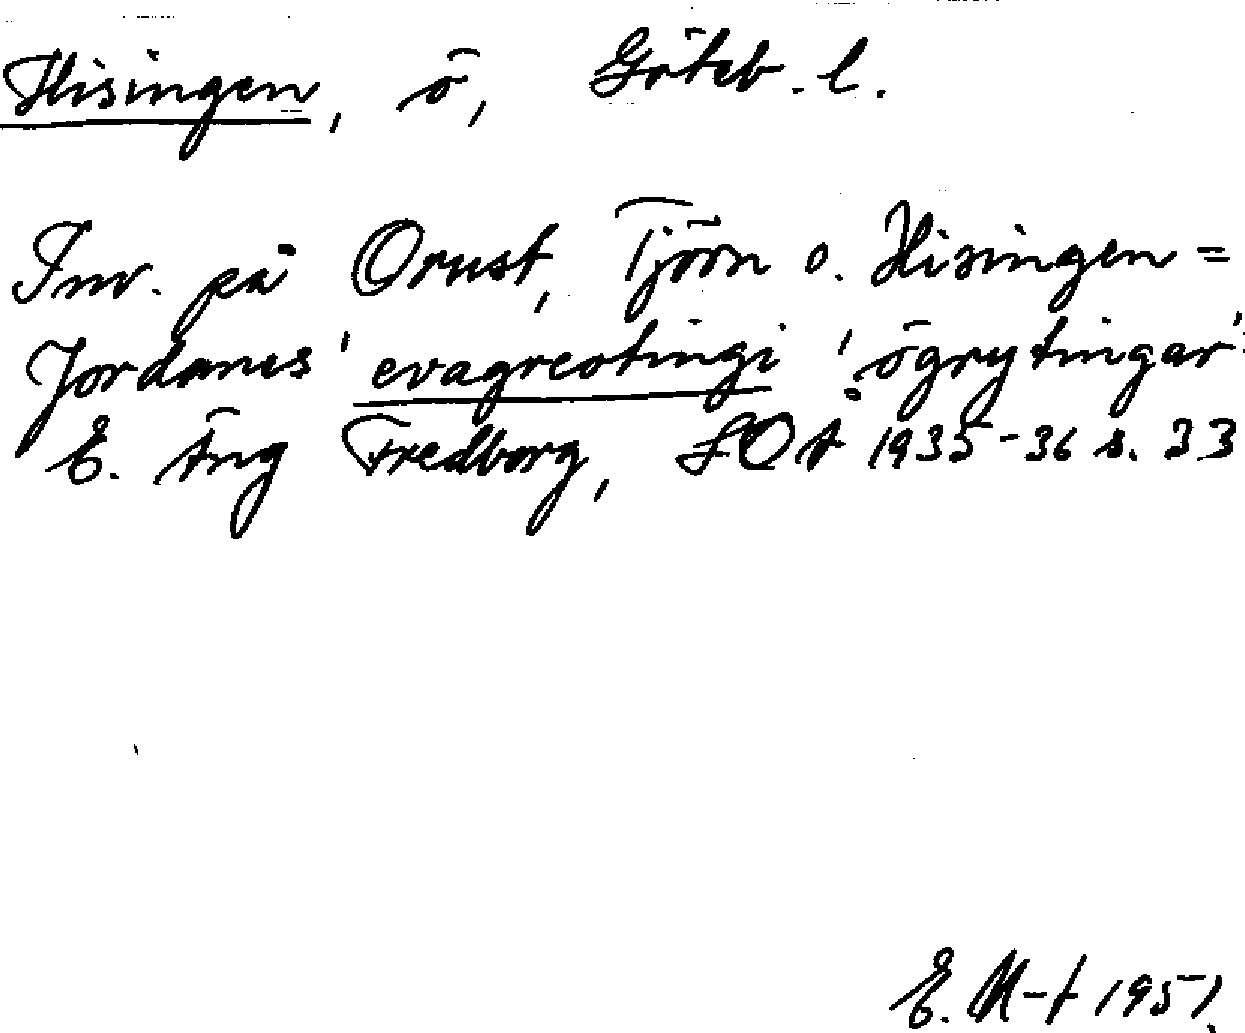 Hisingen, ö, Göteb. l.
Inv. på Orust, Tjörn o. Hisingen =
Jordanes' evagreotingi 'ögrytingar'
E. Äng Fredborg, SOÅ 1935-36 s. 33
E. M-t 1951